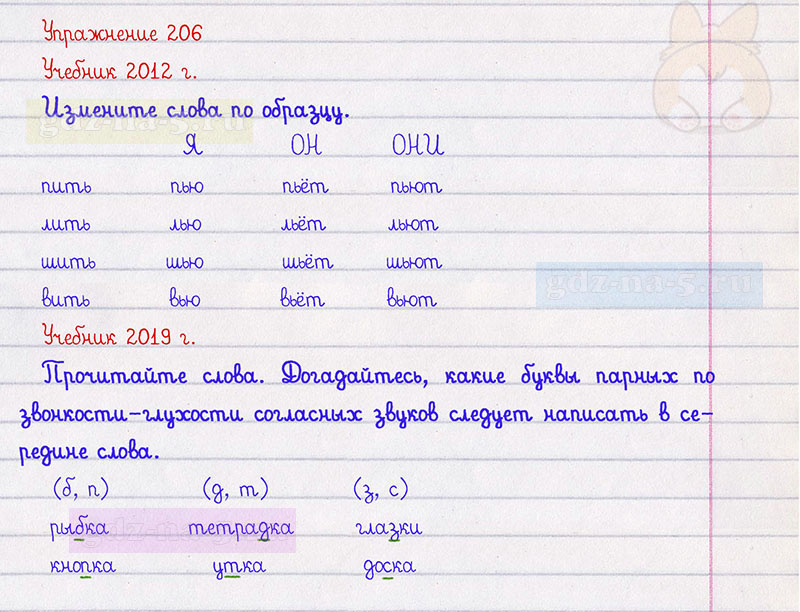 Упражнение 206
Учебник 2012 г.
Измените слова по образцу.
Я ОН ОНИ
пить пью пьёт пьют
лить лью льёт льют
шить шью шьёт шьют
вить вью вьёт вьют
gdz-na-5.ru
Учебник 2019 г.
Прочитайте слова. Догадайтесь, какие буквы парных по
звонкости-глухости согласных звуков следует написать в се-
редине слова.
(б, п) (д, т) (з, с)
рыбка тетрадка глазки
кнопка утка доска